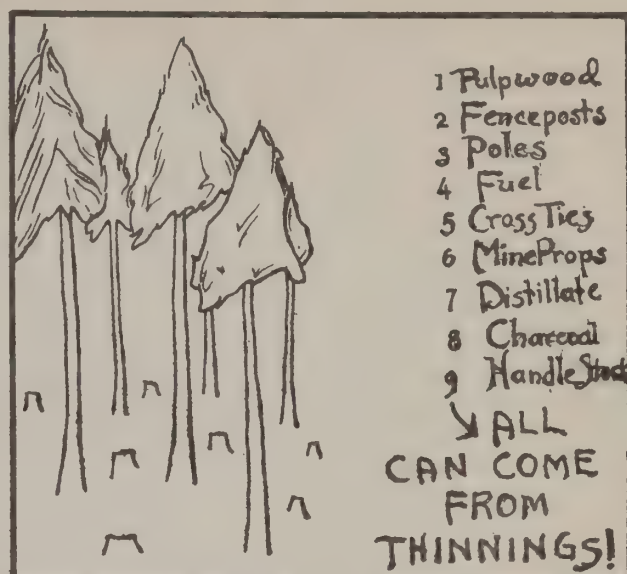 1 Pulpwood
2 Fenceposts
3 Poles
4 Fuel
5 Cross Ties
6 Mine Props
7 Distillate
8 Charcoal
9 Handle Stock
ALL
CAN COME
FROM
THINNINGS!